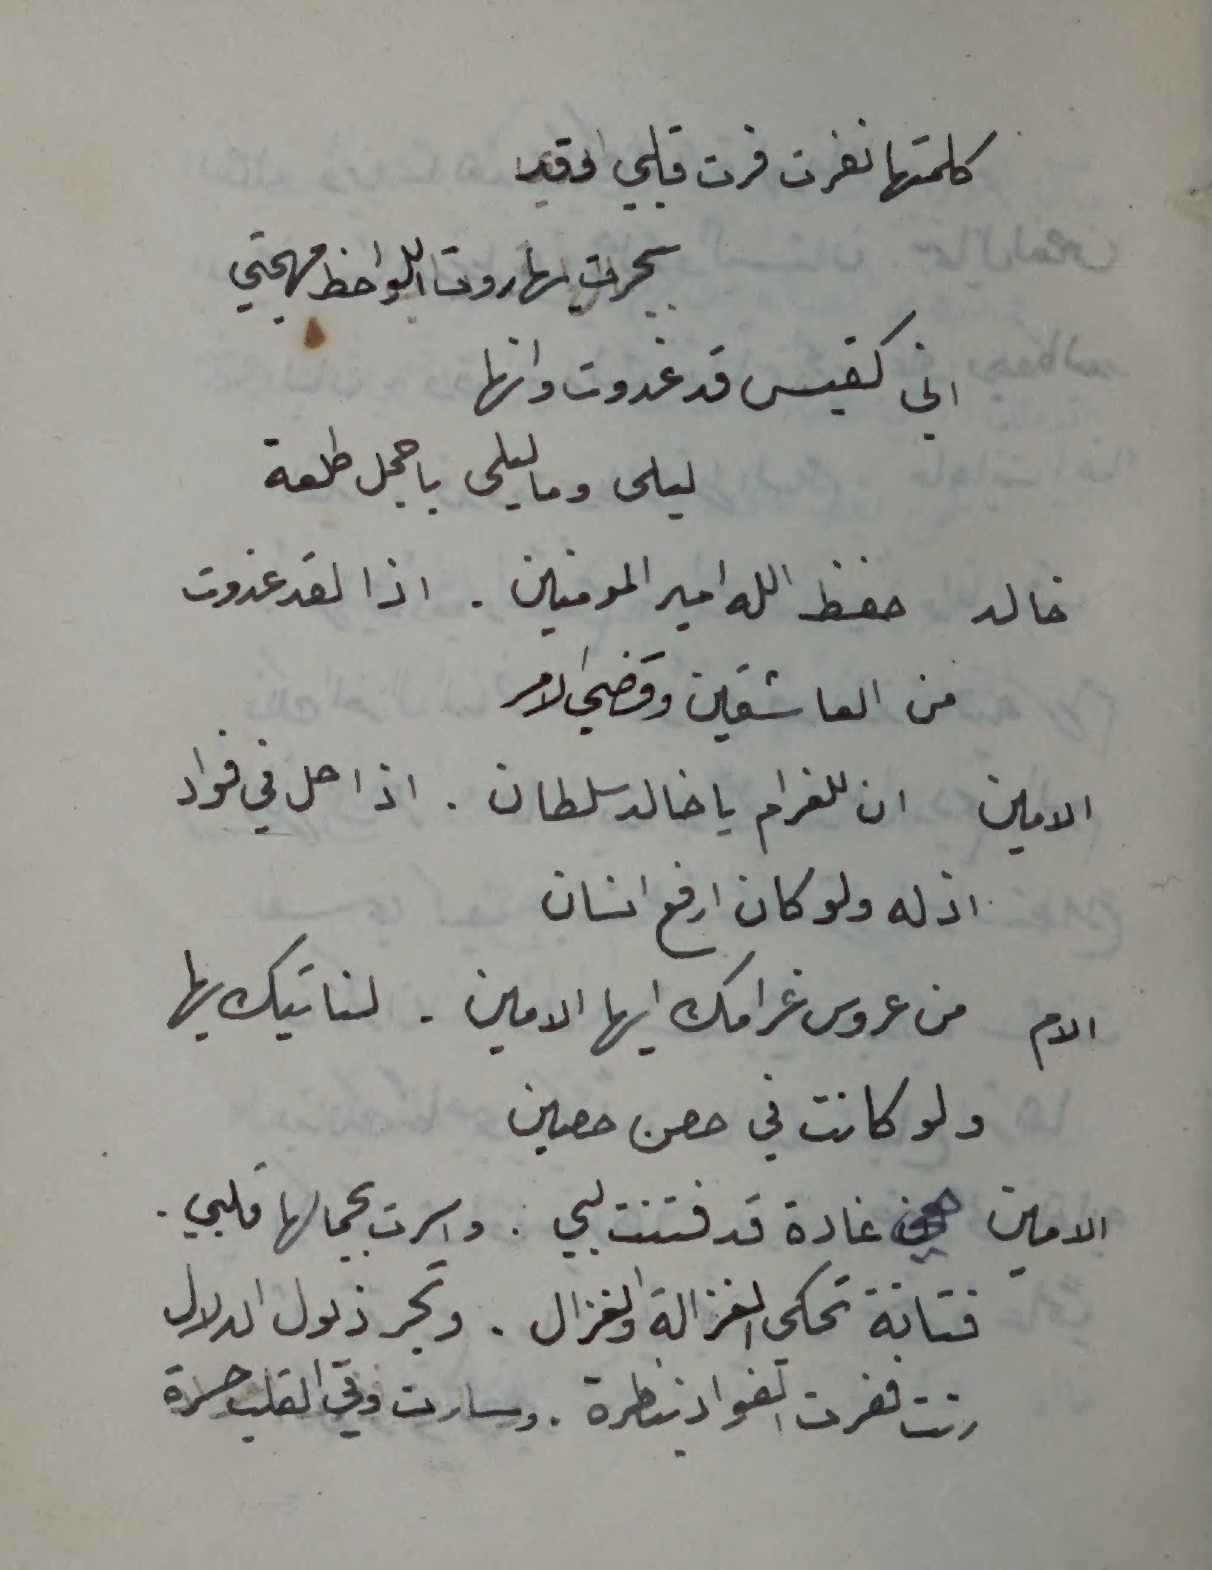 كلمتها نفرت فرت قلبي وقد
سحرت بهاروت اللواحظ مهجتي
اني كقيس قد غدوت وانها
ليلى وما ليلى باجمل طلعة
خالد حفظ الله امير المومنين . اذا لقد غدوت
من العاشقين وقضي الامر
الامين ان للغرام يا خالد سلطان . اذا حل في فواد
اذله ولو كان ارفع انسان
الام من عروس غرامك ايها الامين . لناتيك بها
ولو كانت في حصن حصين
الامين هي غادة قد فتنت لبي . واسرت بجمالها قلبي .
فتانة تحكي الغزالة والغزال . وتجر ذيول الدلال
رنت ففرت الفواد بنظرة . وسارت وفي القلب حسرة